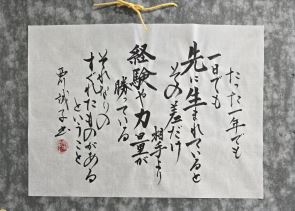 たった一年でも
一日でも
先に生まれていると
その差だけ
相手より
経験や力量が
勝っている
それなりの
すぐれたものがある
ということ